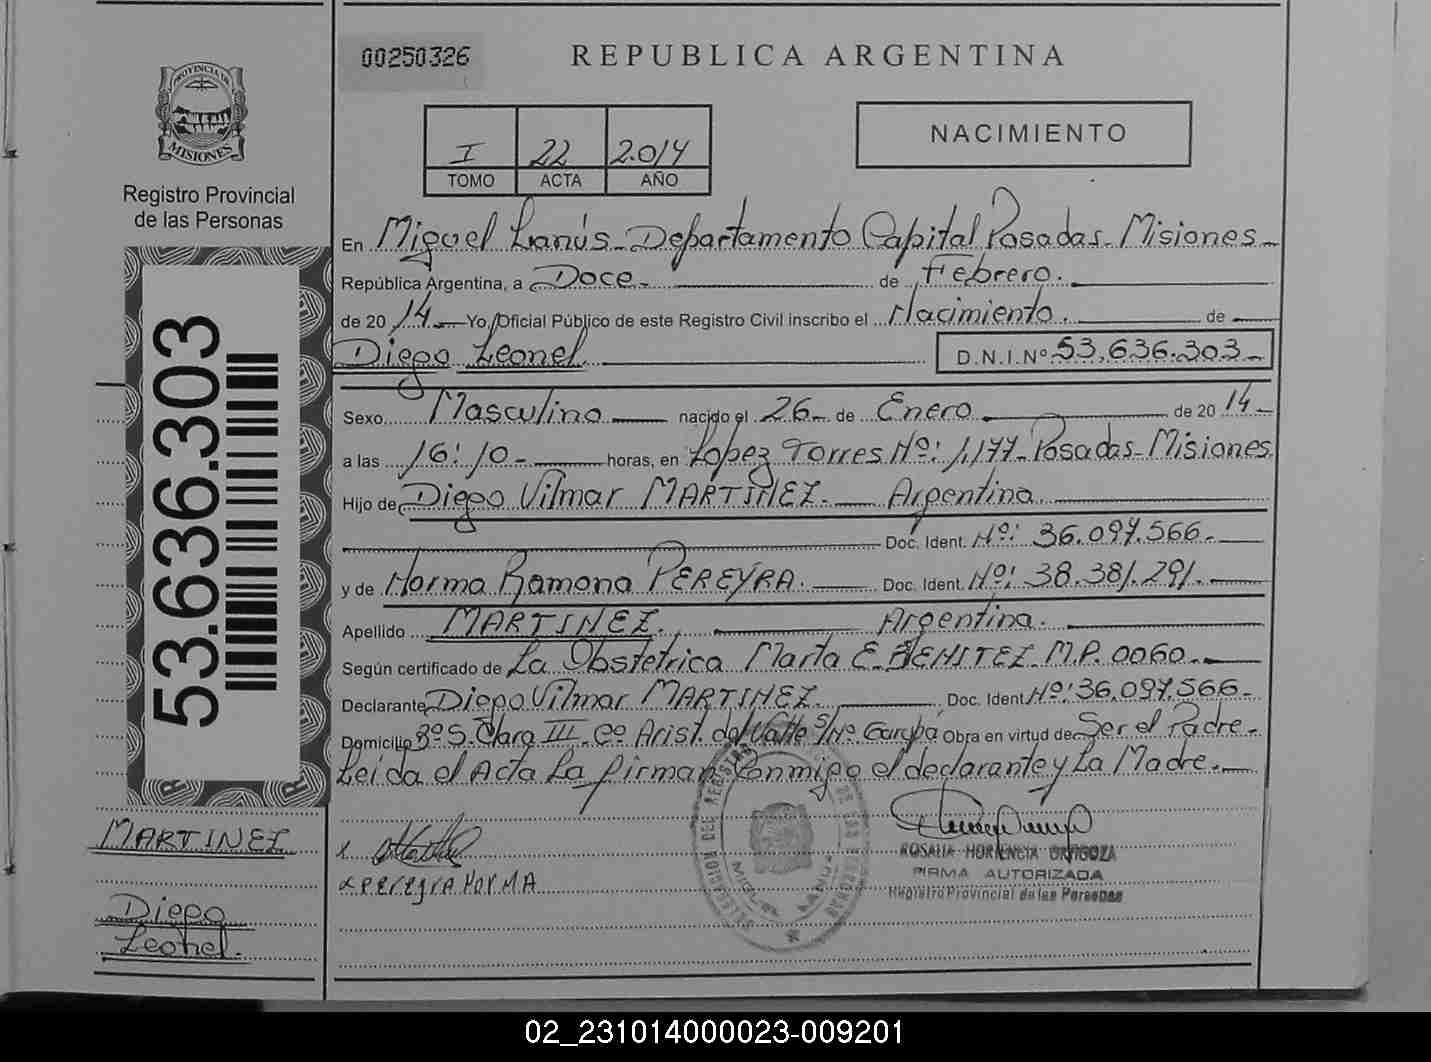 00250326
REPUBLICA ARGENTINA
PROVINCIA DE
MISIONES
Registro Provincial
de las Personas
I 22 2.014
TOMO ACTA AÑO
NACIMIENTO
En Miguel Lanús- Departamento Capital Posadas- Misiones-
República Argentina, a Doce- de Febrero.
de 20 14 Yo, Oficial Público de este Registro Civil inscribo el Nacimiento. de
Diego Leonel D.N.I.Nº 53.636.303-
Sexo Masculino nacido el 26- de Enero de 20 14-
a las 16:10- horas, en Lopez Torres Nº: 1,177- Posadas- Misiones
Hijo de Diego Vilmar MARTINEZ. Argentina
Doc. Ident. Nº: 36.097.566-
y de Norma Ramona PEREYRA. Doc. Ident. Nº: 38.381.291.
Apellido MARTINEZ. Argentina.
Según certificado de La Obstetrica Marta E. BENITEZ- M.P. 0060-
Declarante Diego Vilmar MARTINEZ. Doc. Ident. Nº: 36.097.566-
Domicilio Bº S. Clara III- Cº Arist. del Valle S/Nº Garupá Obra en virtud de Ser el Padre-
Leida el Acta La firman Conmigo el declarante y La Madre.
x pereyra NORMA
ROSALIA HORTENCIA ORTIGOZA
FIRMA AUTORIZADA
Registro Provincial de las Personas
DELEGACION DEL REGISTRO DE LAS PERSONAS
MIGUEL LANUS
53.636.303
MARTINEZ
Diego
Leonel.
02_231014000023-009201